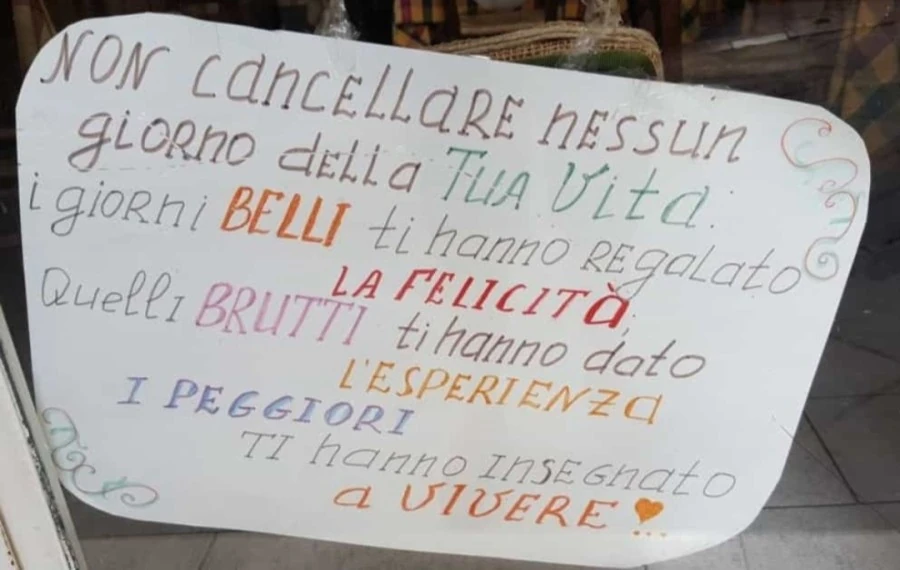 NON cancELLaRE nESSun
giORno dELLa TUA Vita.
i gioRni BELLI ti hanno REgaLato
LA FELICITà,
QuELLi BRUTTI ti hanno dato
L'ESPERIENZa
I PEGGIORI
TI hanno InSEGnato
a VIVERE ♥...